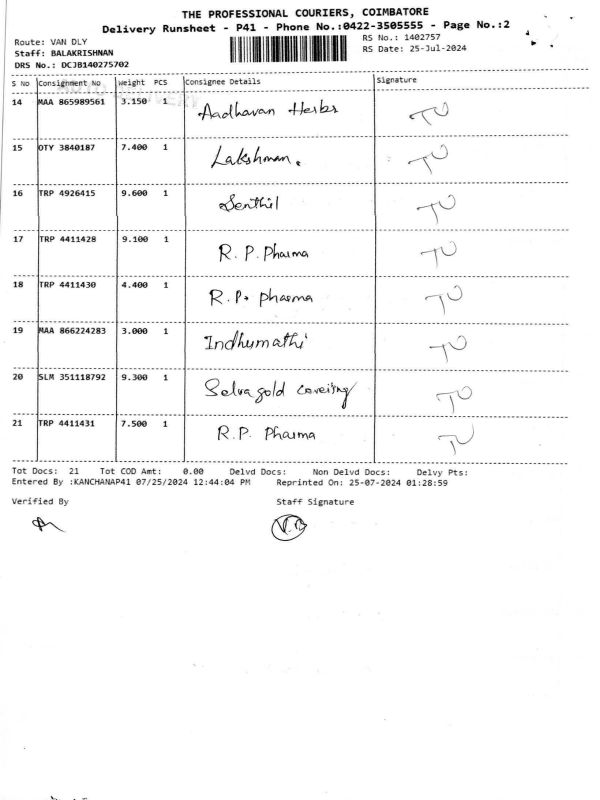 THE PROFESSIONAL COURIERS, COIMBATORE
Delivery Runsheet - P41 - Phone No.:0422-3505555 - Page No.:2
Route: VAN DLY RS No.: 1402757
Staff: BALAKRISHNAN RS Date: 25-Jul-2024
DRS No.: DCJB140275702
S No Consignment No Weight PCS Consignee Details Signature
14 MAA 865989561 3.150 1 Aadhavan Herbs
15 OTY 3840187 7.400 1 Lakshman.
16 TRP 4926415 9.600 1 Senthil
17 TRP 4411428 9.100 1 R. P. Pharma
18 TRP 4411430 4.400 1 R.P. pharma
19 MAA 866224283 3.000 1 Indhumathi
20 SLM 351118792 9.300 1 Selva gold covering
21 TRP 4411431 7.500 1 R.P. Pharma
Tot Docs: 21 Tot COD Amt: 0.00 Delvd Docs: Non Delvd Docs: Delvy Pts:
Entered By :KANCHANAP41 07/25/2024 12:44:04 PM Reprinted On: 25-07-2024 01:28:59
Verified By Staff Signature